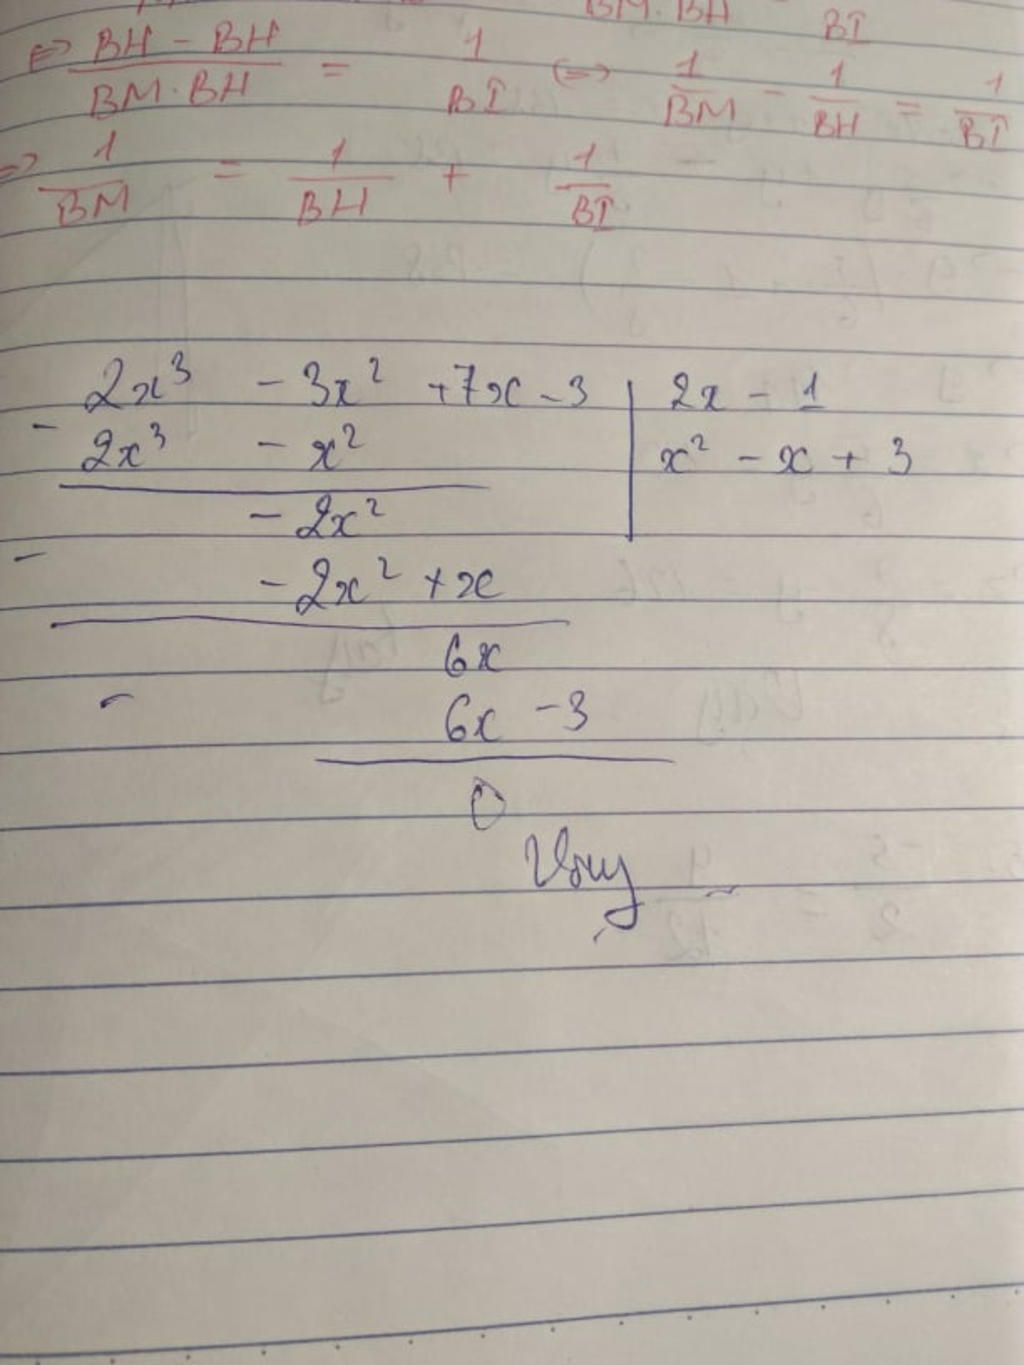 BM.BH BI
<=> BH - BH / BM.BH = 1 / BI <=> 1 / BM - 1 / BH = 1 / BI
=> 1 / BM = 1 / BH + 1 / BI
2x³ - 3x² +7x - 3 | 2x - 1
- 2x³ - x² | x² - x + 3
- 2x²
- - 2x² + x
6x
- 6x - 3
0
Vậy